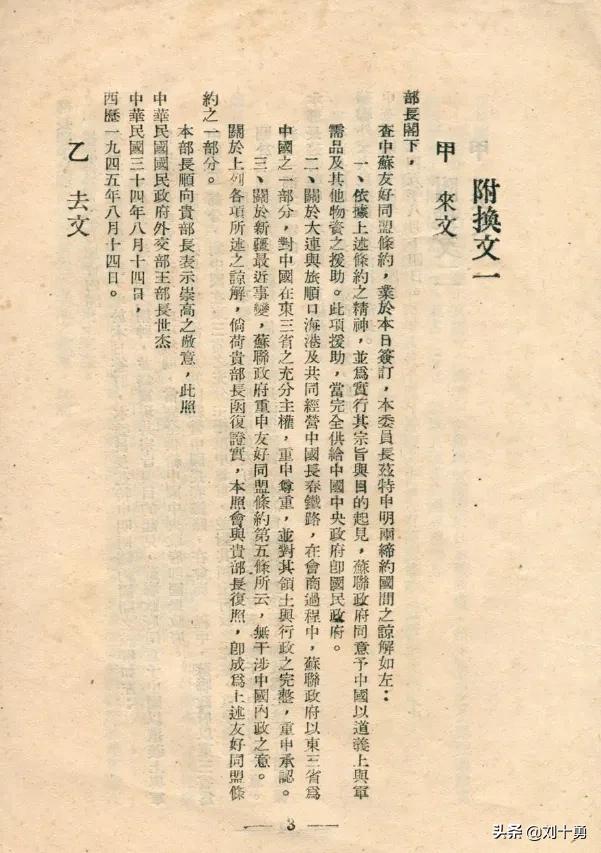 附換文一
甲　來文
部長閣下，
查中蘇友好同盟條約，業於本日簽訂，本委員長茲特申明兩締約國間之諒解如左：
一、依據上述條約之精神，並為實行其宗旨與目的起見，蘇聯政府同意予中國以道義上與軍
需品及其他物資之援助。此項援助，當完全供給中國中央政府即國民政府。
二、關於大連與旅順口海港及共同經營中國長春鐵路，在會商過程中，蘇聯政府以東三省為
中國之一部分，對中國在東三省之充分主權，重申尊重，並對其領土與行政之完整，重申承認。
三、關於新疆最近事變，蘇聯政府重申友好同盟條約第五條所云，無干涉中國內政之意。
關於上列各項所述之諒解，倘荷貴部長函復證實，本照會與貴部長復照，即成為上述友好同盟條
約之一部分。
本部長順向貴部長表示崇高之敬意，此照
中華民國國民政府外交部王部長世杰
中華民國三十四年八月十四日，
西歷一九四五年八月十四日。
乙　去文
— 3 —
头条 @刘十勇